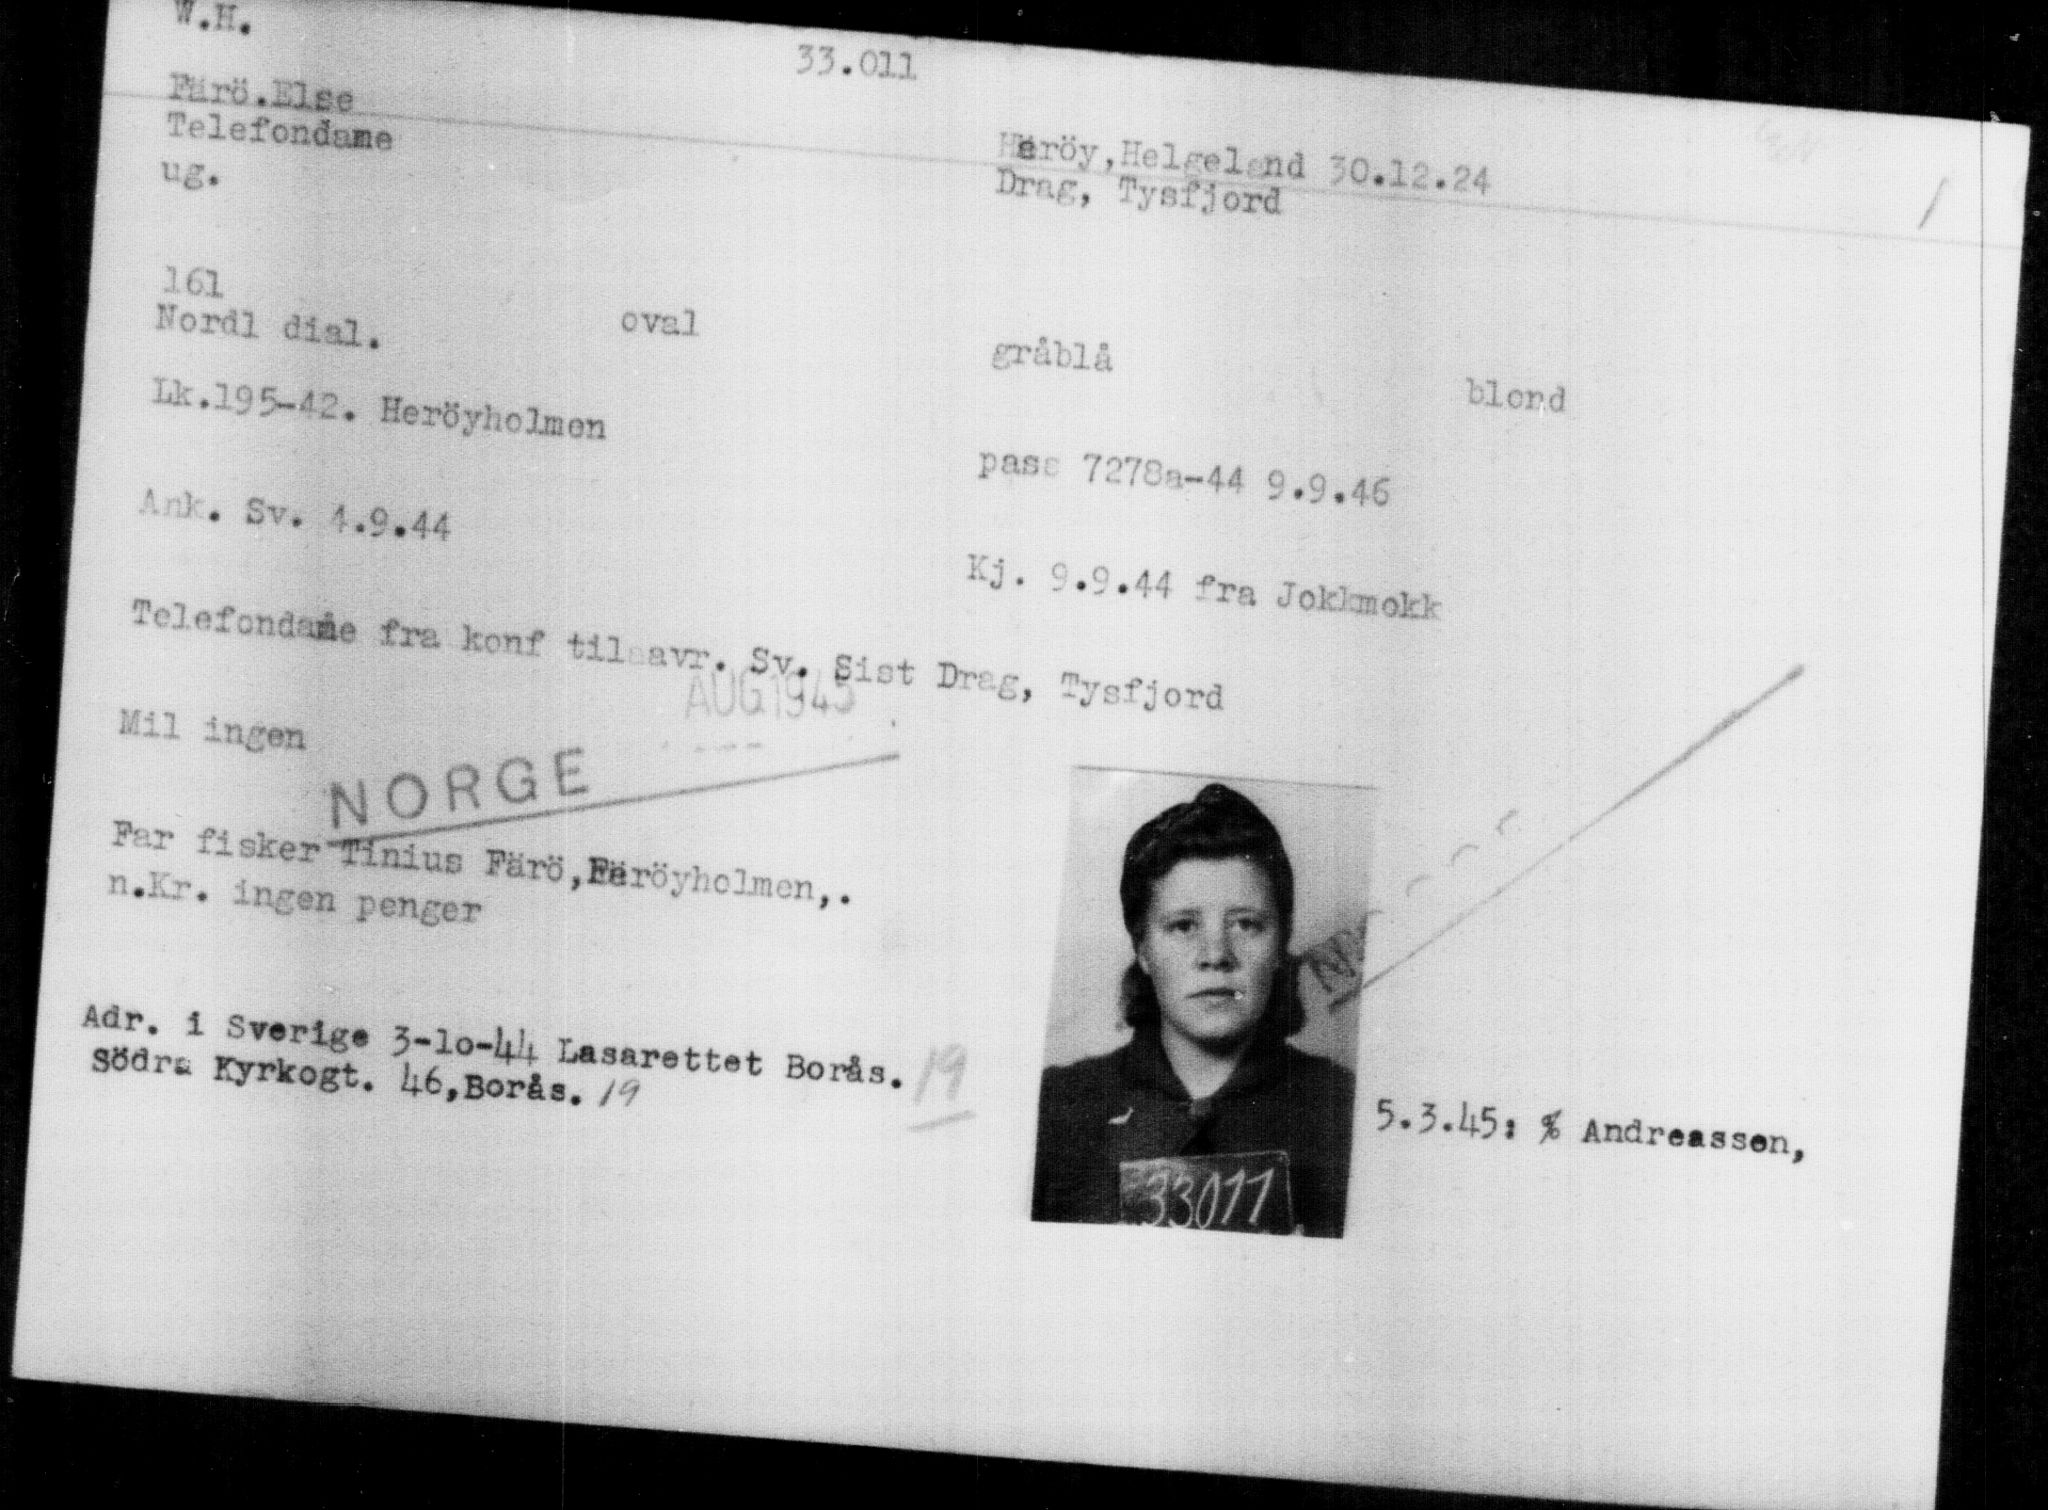 W.H.
33.011
Färö.Else
Telefondame
ug.
Heröy,Helgeland 30.12.24
Drag, Tysfjord
161
Nordl dial.
oval
gråblå
blond
Lk.195-42. Heröyholmen
pass 7278a-44 9.9.46
Ank. Sv. 4.9.44
Kj. 9.9.44 fra Jokkmokk
Telefondame fra konf til avr. Sv. Sist Drag, Tysfjord
AUG 1945
Mil ingen
NORGE
Far fisker Tinius Färö, Heröyholmen,.
n.Kr. ingen penger
Adr. i Sverige 3-10-44 Lasarettet Borås. 19
Södra Kyrkogt. 46,Borås. 19
5.3.45: % Andreassen,
33011